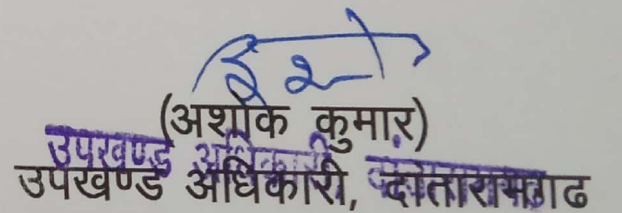 (अशोक कुमार)
उपखण्ड अधिकारी
उपखण्ड अधिकारी, दांतारामगढ